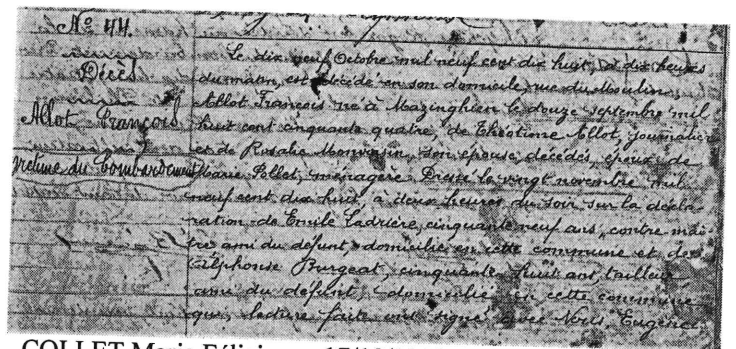 Nº 44.
Décès
Allot François
victime du bombardement
Le dix neuf Octobre mil neuf cent dix huit, à dix heures
du matin, est décédé en son domicile rue du Moulin,
Allot François né à Mazinghien le douze septembre mil
huit cent cinquante quatre, de Théotime Allot, journalier
et de Rosalie son épouse, décédés, époux de
Marie Collet, ménagère. Dressé le vingt novembre mil
neuf cent dix huit, à deux heures du soir sur la décla
ration de Emile Ladrière, cinquante neuf ans, contre maî
tre ami du défunt, domicilié en cette commune et de
Alphonse Burgeat, cinquante huit ans, tailleur
ami du défunt, domicilié en cette commune
qui, lecture faite ont signé avec Nous, Eugène
COLLET Marie